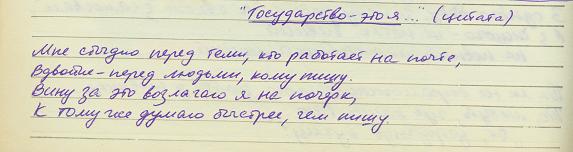 "Государство-это я..." (цитата)
Мне стыдно перед теми, кто работает на почте,
Вдвойне - перед людьми, кому пишу.
Вину за это возлагаю я на почерк,
К тому же думаю быстрее, чем пишу.